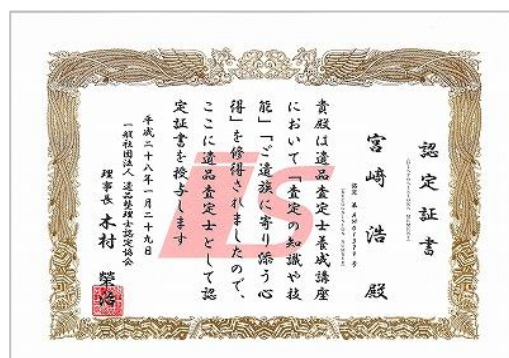 認定証書
宮﨑 浩 殿
貴殿は遺品査定士養成講座
において「査定の知識や技
能」「ご遺族に寄り添う心
得」を修得されましたので、
ここに遺品査定士として認
定証書を授与します
平成二十八年一月二十九日
一般社団法人 遺品整理士認定協会
理事長 木村 榮治
IS